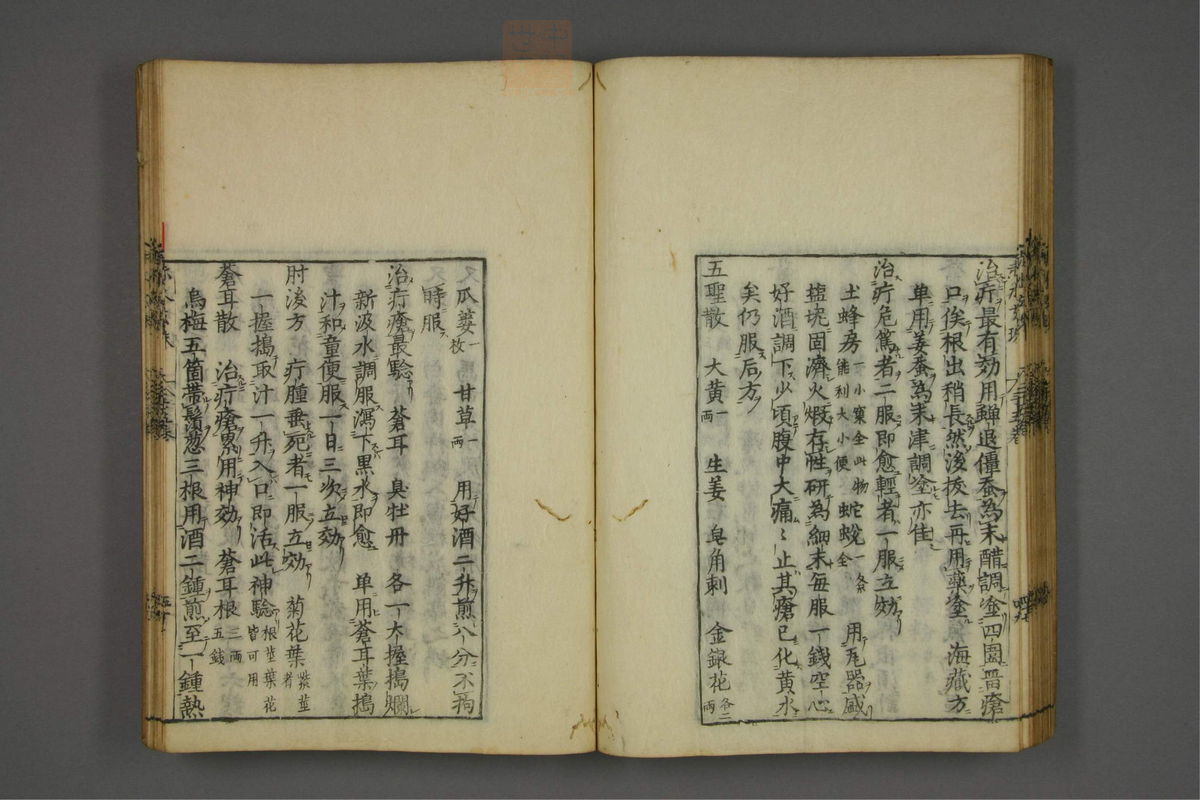 治疔最有効用蟬退僵蚕為末醋調塗四圍畱瘡
口俟根出稍長然後拔去再用藥塗 海藏方
単用姜蚕為末津調塗亦佳
治疔危篤者二服即愈輕者一服立効
土蜂房一小窠全此物能利大小便 蛇蛻一条全 用瓦器盛
塩埦固濟火煆存性研為細末毎服一錢空心
好酒調下少頃腹中大痛〻止其瘡已化黄水
矣仍服后方
五聖散 大黄一両 生姜 皂角刺 金銀花各二両
瓜蔞一枚 甘草一両 用好酒二升煎八分不拘
時服
治疔瘡最騐 蒼耳 臭牡丹 各一大握搗爛
新汲水調服瀉下黒水即愈 单用蒼耳葉搗
汁和童便服一日三次立効
肘後方 疔腫垂死者一服立効 菊花葉紫莖者
一握搗取汁一升入口即活此神騐根莖葉花皆可用
蒼耳散 治疔瘡累用神効 蒼耳根三両五錢
烏梅五箇帯鬚葱三根用酒二鍾煎至一鍾熱